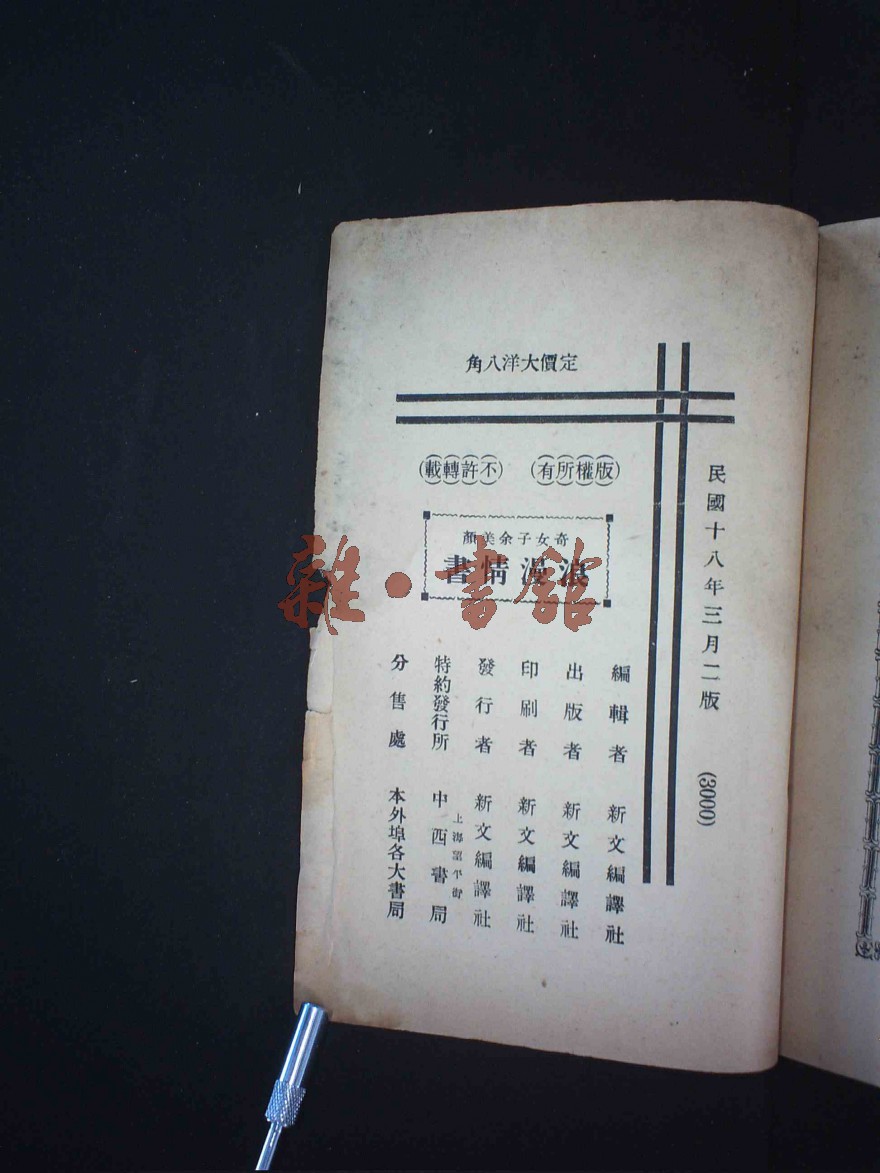 定價大洋八角
民國十八年三月二版 (3000)
(版權所有) (不許轉載)
奇女子余美顏
浪漫情書
編輯者 新文編譯社
出版者 新文編譯社
印刷者 新文編譯社
發行者 新文編譯社
上海望平街
特約發行所 中西書局
分售處 本外埠各大書局
雜·書館